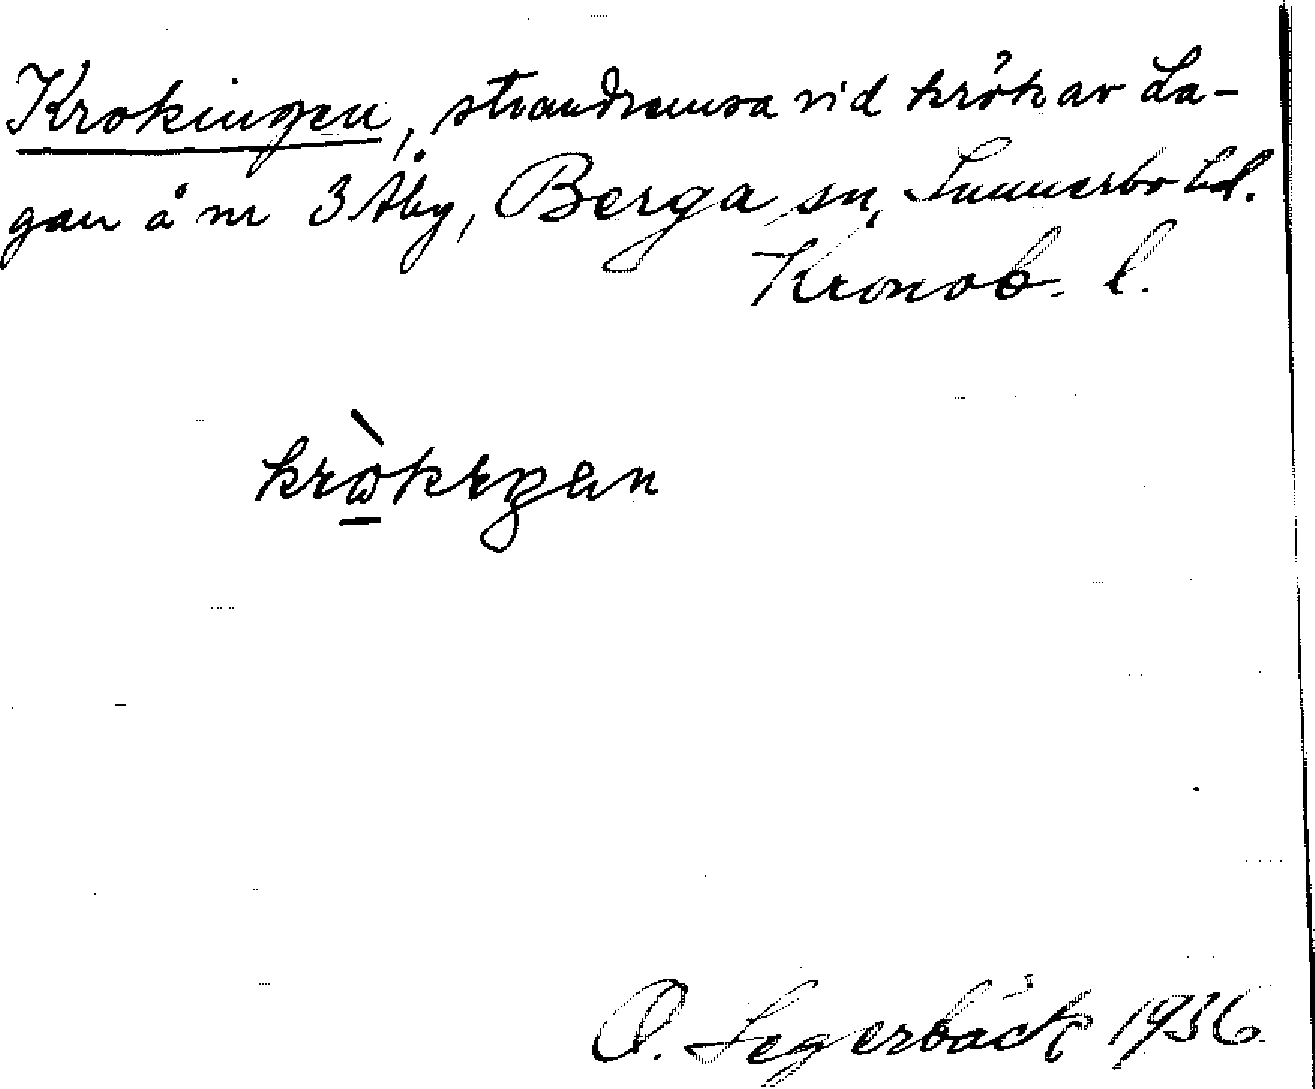 Krokingen, strandremsa vid krök av La-
gan å nr 3 Åby, Berga sn, Sunnerbo hd.
Kronob. l.
krὼ̱kɩŋən
O. Segerbäck 1936